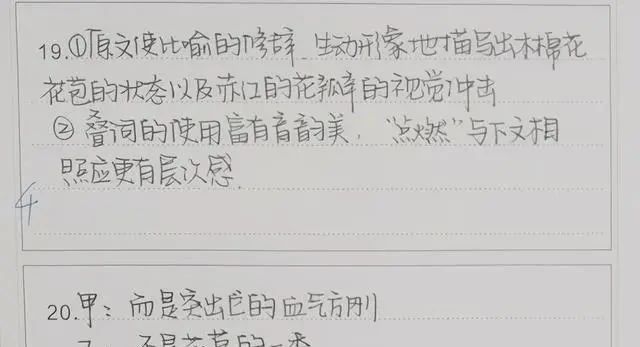 19.①原文使比喻的修辞,生动形象地描写出木棉花
花苞的状态以及赤红的花瓣率的视觉冲击
②叠词的使用富有音韵美,“点燃”与下文相
照应更有层次感.
4
20.甲:而是突出它的血气方刚
不是花苞的一